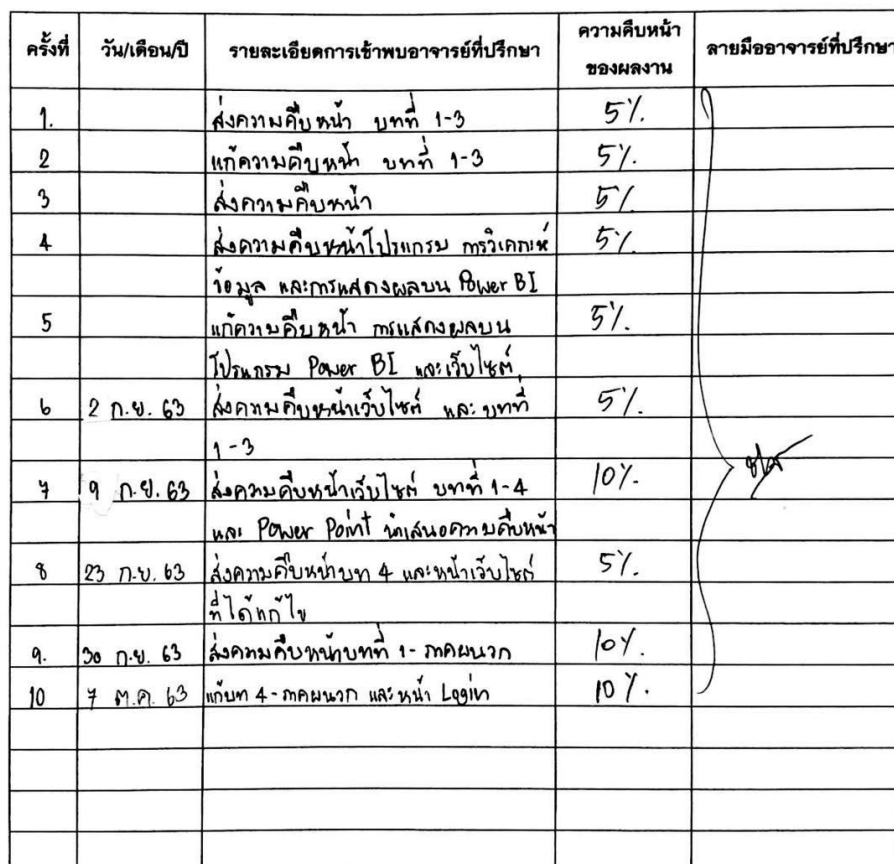 ครั้งที่ วัน/เดือน/ปี รายละเอียดการเข้าพบอาจารย์ที่ปรึกษา ความคืบหน้าของผลงาน ลายมืออาจารย์ที่ปรึกษา
1. ส่งความคืบหน้า บทที่ 1-3 5%.
2 แก้ความคืบหน้า บทที่ 1-3 5%.
3 ส่งความคืบหน้า 5%
4 ส่งความคืบหน้าโปรแกรม การวิเคราะห์ 5%.
ข้อมูล และการแสดงผลบน Power BI
5 แก้ความคืบหน้า การแสดงผลบน 5%.
โปรแกรม Power BI และเว็บไซต์
6 2 ก.ย. 63 ส่งความคืบหน้าเว็บไซต์ และ บทที่ 5%.
1-3
7 9 ก.ย. 63 ส่งความคืบหน้าเว็บไซต์ บทที่ 1-4 10%.
และ Power Point นำเสนอความคืบหน้า
8 23 ก.ย. 63 ส่งความคืบหน้าบท 4 และหน้าเว็บไซต์ 5%.
ที่ได้แก้ไข
9. 30 ก.ย. 63 ส่งความคืบหน้าบทที่ 1- ภาคผนวก 10%.
10 7 ต.ค. 63 แก้บท 4-ภาคผนวก และหน้า Login 10%.